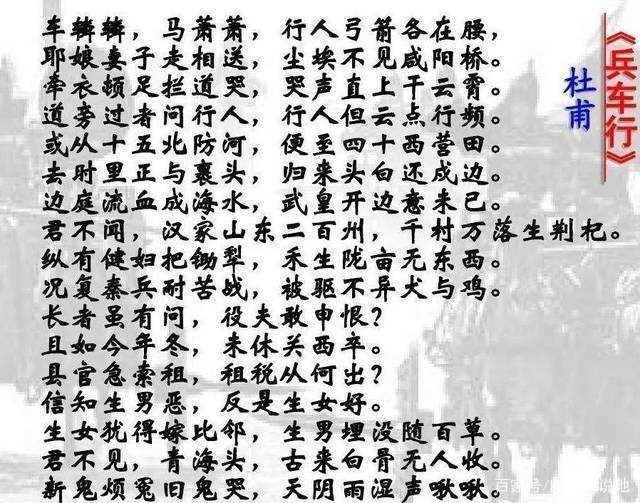 《兵车行》
杜甫
车辚辚，马萧萧，行人弓箭各在腰，
耶娘妻子走相送，尘埃不见咸阳桥。
牵衣顿足拦道哭，哭声直上干云霄。
道旁过者问行人，行人但云点行频。
或从十五北防河，便至四十西营田。
去时里正与裹头，归来头白还戍边。
边庭流血成海水，武皇开边意未已。
君不闻，汉家山东二百州，千村万落生荆杞。
纵有健妇把锄犁，禾生陇亩无东西。
况复秦兵耐苦战，被驱不异犬与鸡。
长者虽有问，役夫敢申恨？
且如今年冬，未休关西卒。
县官急索租，租税从何出？
信知生男恶，反是生女好。
生女犹得嫁比邻，生男埋没随百草。
君不见，青海头，古来白骨无人收。
新鬼烦冤旧鬼哭，天阴雨湿声啾啾。
百家号/